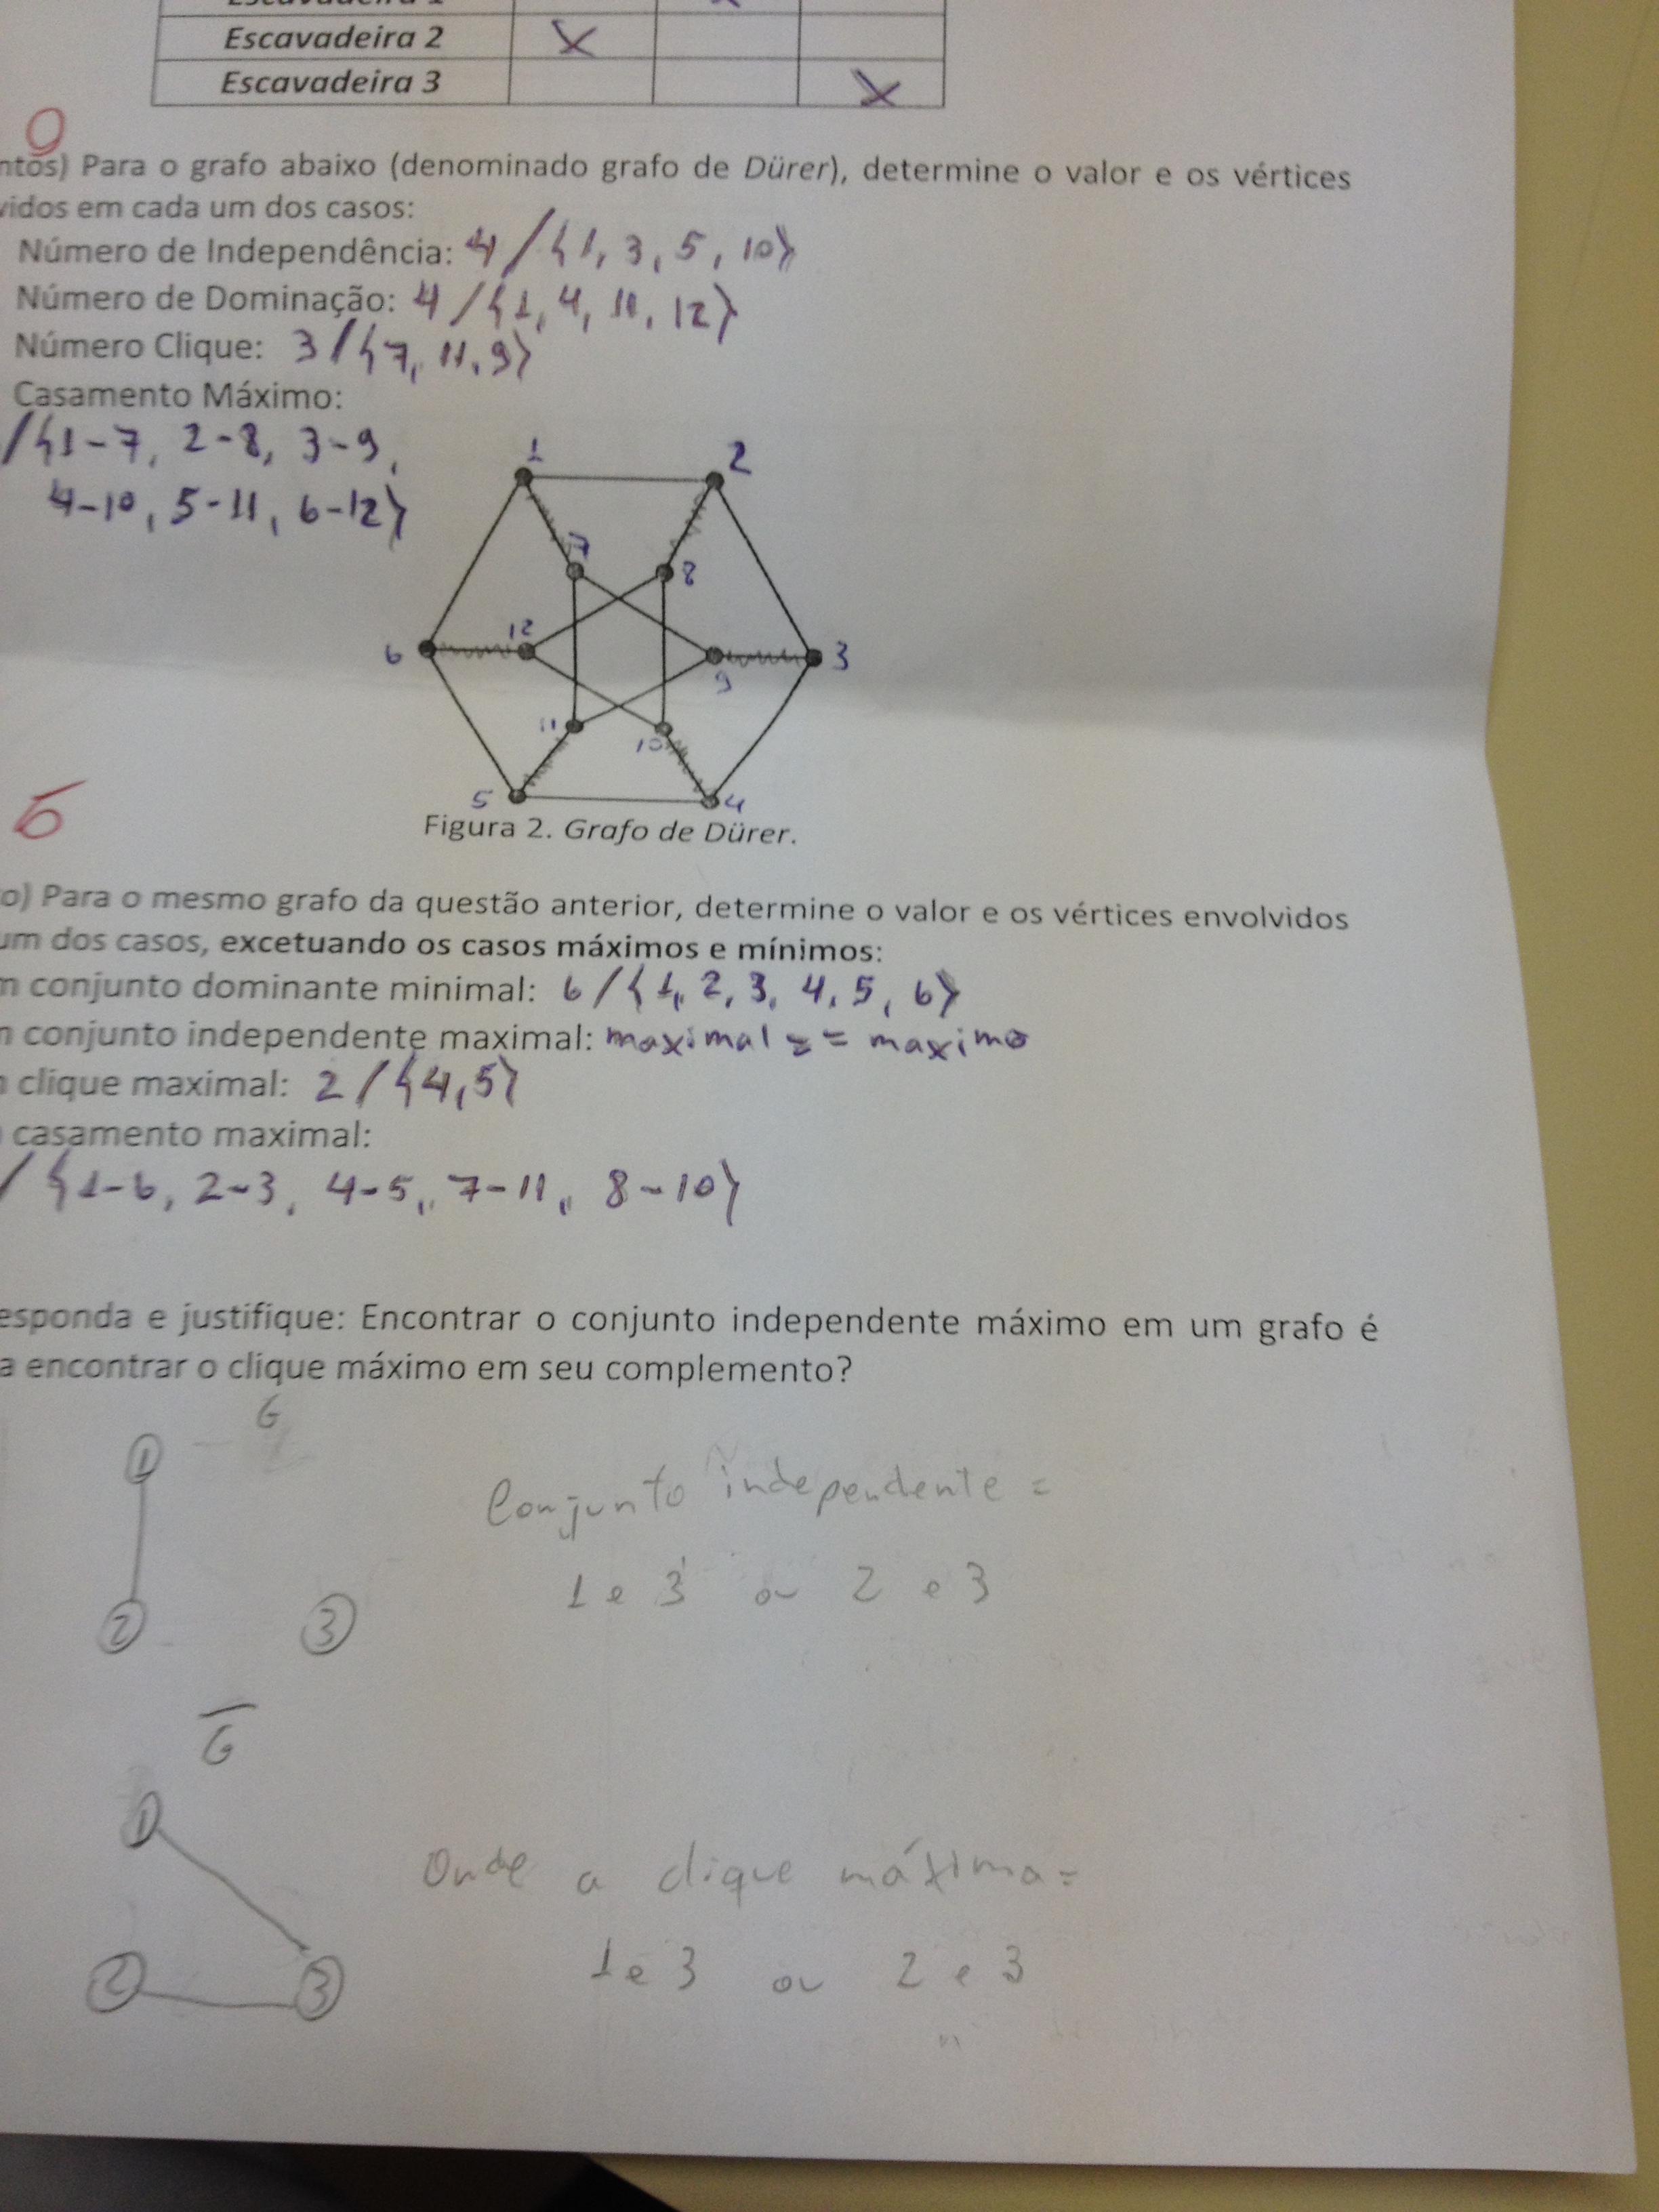 Escavadeira 1 x
Escavadeira 2 x
Escavadeira 3 x
ntos) Para o grafo abaixo (denominado grafo de Dürer), determine o valor e os vértices
vidos em cada um dos casos:
Número de Independência: 4 / {1, 3, 5, 10}
Número de Dominação: 4 / {1, 4, 11, 12}
Número Clique: 3 / {7, 11, 9}
Casamento Máximo:
/ {1-7, 2-8, 3-9,
4-10, 5-11, 6-12}
1 2
7 8
6 12 9 3
11 10
5 4
Figura 2. Grafo de Dürer.
o) Para o mesmo grafo da questão anterior, determine o valor e os vértices envolvidos
um dos casos, excetuando os casos máximos e mínimos:
m conjunto dominante minimal: 6 / {1, 2, 3, 4, 5, 6}
m conjunto independente maximal: maximal == maximo
clique maximal: 2 / {4,5}
casamento maximal:
/ {1-6, 2-3, 4-5, 7-11, 8-10}
esponda e justifique: Encontrar o conjunto independente máximo em um grafo é
a encontrar o clique máximo em seu complemento?
G
1
Conjunto independente =
1 e 3 ou 2 e 3
2 3
G̅
1
Onde a clique máxima =
1 e 3 ou 2 e 3
2 3